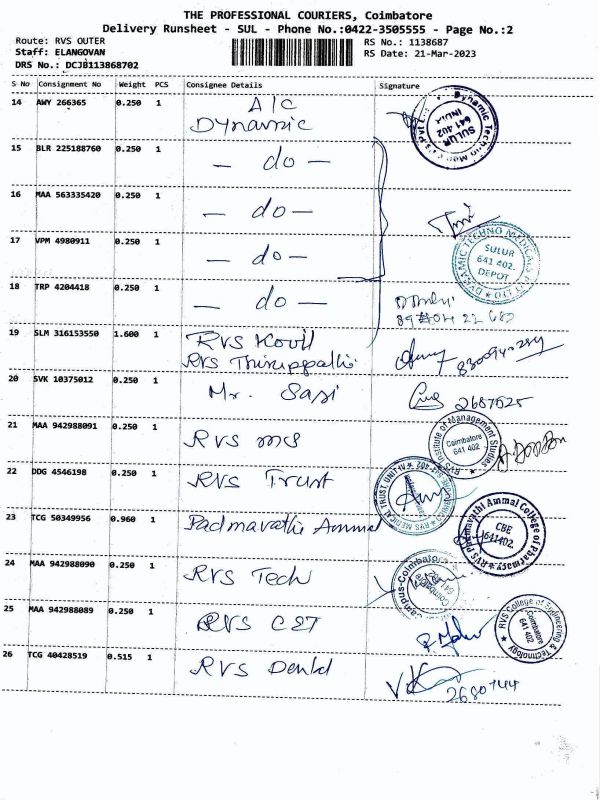 THE PROFESSIONAL COURIERS, Coimbatore
Delivery Runsheet - SUL - Phone No.:0422-3505555 - Page No.:2
Route: RVS OUTER
Staff: ELANGOVAN
DRS No.: DCJB113868702
RS No.: 1138687
RS Date: 21-Mar-2023
S No Consignment No Weight PCS Consignee Details Signature
14 AWY 266365 0.250 1 A/C
Dynamic
SULUR
641 402
INDIA
15 BLR 225188760 0.250 1 — do —
16 MAA 563335420 0.250 1 — do —
17 VPM 4980911 0.250 1 — do —
DYNAMIC TECHNO MEDICALS PVT LTD
SULUR
641 402.
DEPOT
18 TRP 4204418 0.250 1 — do —
19 SLM 316153550 1.600 1 RVS Kovil
RVS Thiruppathi
20 SVK 10375012 0.250 1 Mr. Sasi 2687525
21 MAA 942988091 0.250 1 RVS IMS
RVS Institute of Management Studies
Coimbatore
641 402
22 DDG 4546198 0.250 1 RVS Trust
RVS MEDICAL TRUST UNIT-IV
23 TCG 50349956 0.960 1 Padmavathi Ammal
RVS Padmavathi Ammal College of Pharmacy
CBE
641402.
24 MAA 942988090 0.250 1 RVS Tech
Campus-Coimbatore
25 MAA 942988089 0.250 1 RVS CET
RVS College of Engineering & Technology
Coimbatore
641 402
26 TCG 40428519 0.515 1 RVS Dental 2680744